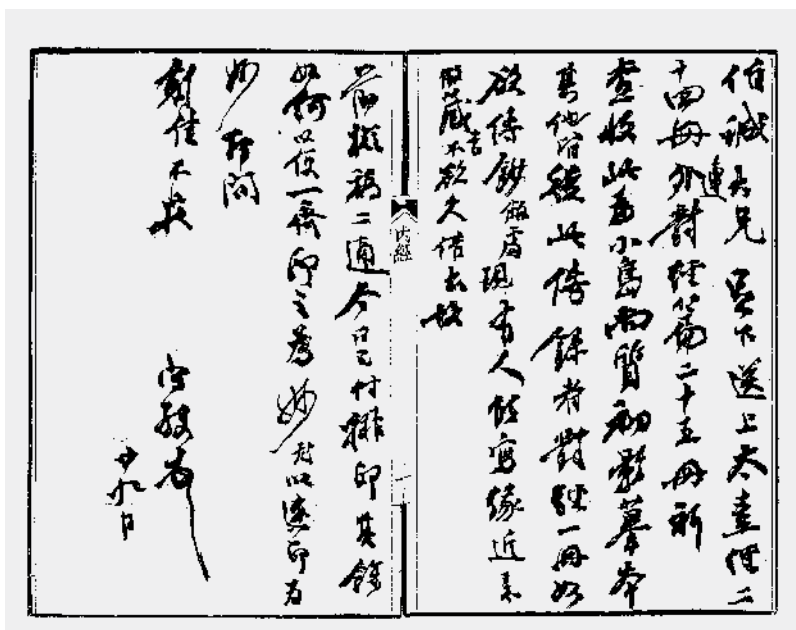 伯誠大兄 足下送上太素經二
十四冊外對經篇二十五冊祈
查收此爲小島尚質初影摹本
其他皆從此傳錄者對經一冊如
欲傳鈔 現有人能寫緣近來
藏書不欲久借去故
前擬稿二通今日已付排印其餘
如何以便一齊印之爲妙 以速印爲
妙 即問
刻佳不莊
守敬 
廿九日
內經
一